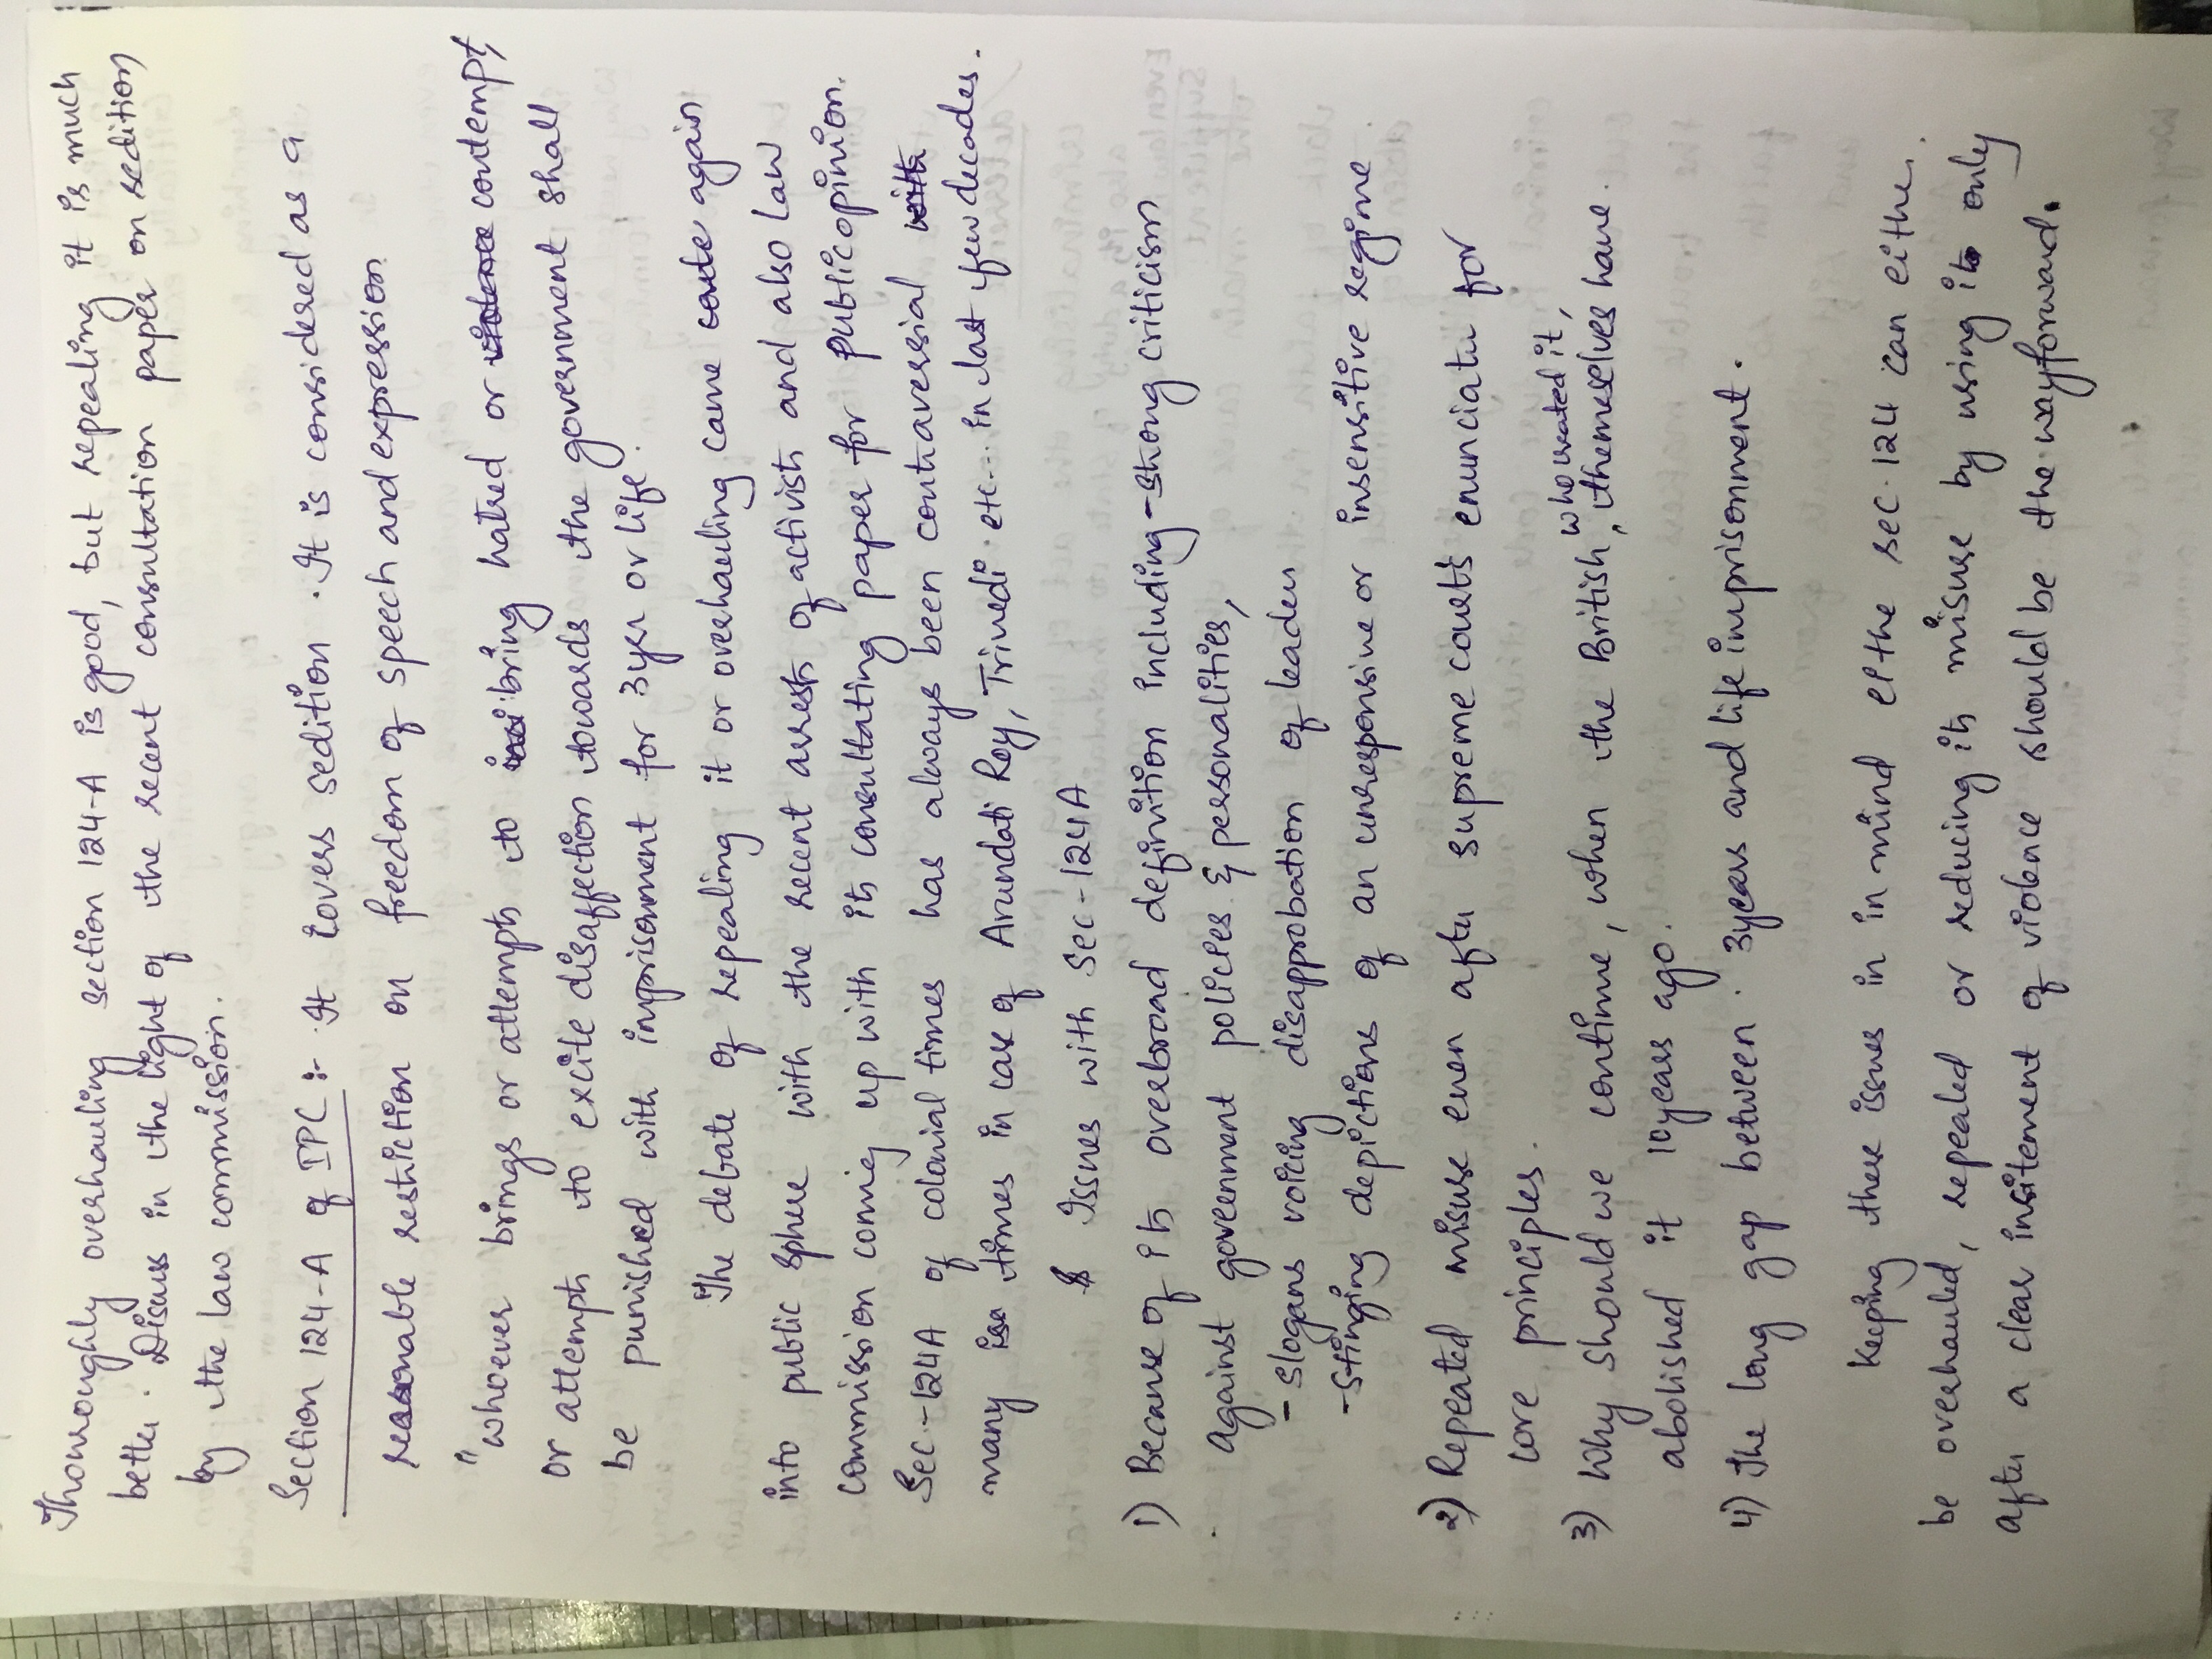 Thouroughly overhauling section 124-A is good, but repealing it is much
better. Discuss in the light of the recent consultation paper on sedition
by the law commission.
Section 124-A of IPC :- It covers sedition. It is considered as a
reasonable restriction on freedom of speech and expression.
"whoever brings or attempts to bring hatred or contempt,
or attempts to excite disaffection towards the government shall
be punished with imprisonment for 3yrs or life.
The debate of repealing it or overhauling came again
into public sphere with the recent arrests of activists and also law
commission coming up with its consultating paper for public opinion.
Sec-124A of colonial times has always been contraversial
many times in case of Arundati Roy, Trivedi etc... in last few decades.
Issues with Sec-124A
1) Because of its overbroad definition including - strong criticism
against government policies & personalities,
- slogans voicing disapprobation of leaders
- stinging depictions of an unresponsive or insensitive regime.
2) Repeated misuse even after supreme court's enunciate for
core principles.
3) Why should we continue, when the British, who created it, themselves have
abolished it 10 years ago.
4) The long gap between. 3years and life imprisonment.
Keeping these issues in in mind the sec. 124 can either.
be overhauled, repealed or reducing its misuse by using it only
after a clear insitement of violence should be the wayforward.